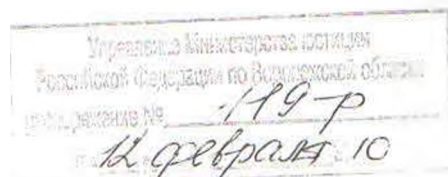 Управление Министерства юстиции
Российской Федерации по Воронежской области
распоряжение № 119-р
12 февраля 10